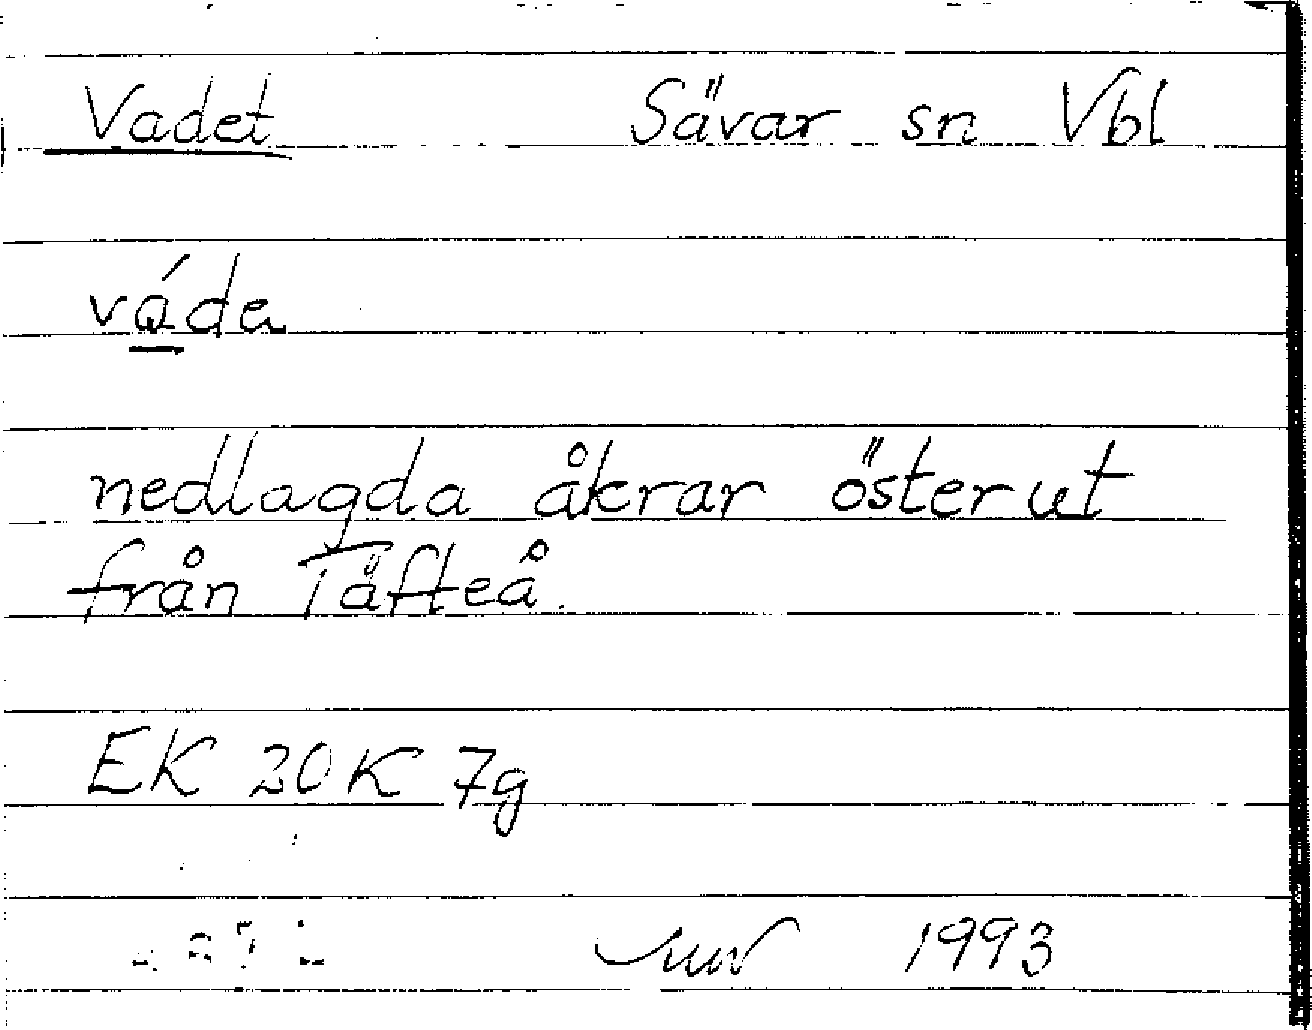 Vadet Sävar sn Vbl
vá̱da
nedlagda åkrar österut
från Täfteå.
EK 20K 7g
1993